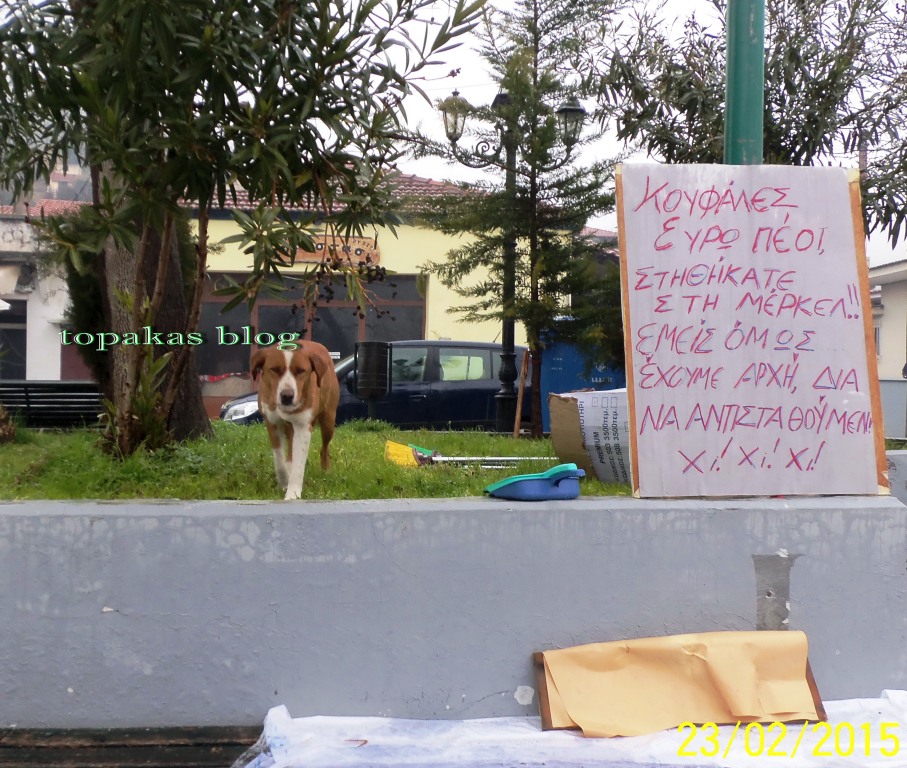 topakas blog
ΚΟΥΦΆΛΕΣ
ΕΥΡΩ ΠΈΟΙ,
ΣΤΗΘΉΚΑΤΕ
ΣΤΗ ΜΈΡΚΕΛ!!
ΕΜΕΊΣ ΌΜΩΣ
ΈΧΟΥΜΕ ΑΡΧΉ, ΔΙΑ
ΝΑ ΑΝΤΙΣΤΑΘΟΎΜΕΝ!
Χι! Χι! Χι!
PREMIUM
23/02/2015